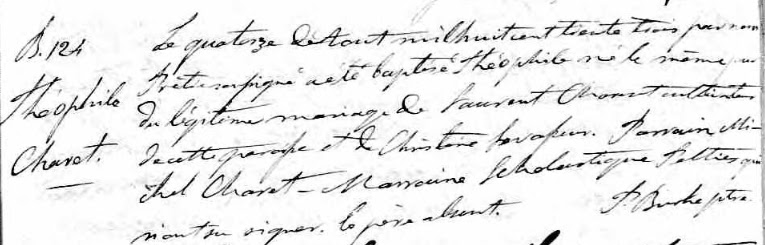 B. 124
Théophile
Charet.
Le quatorze d'aout mil huit cent trente trois par nous
Prêtre soussigné a été baptisé Théophile né le même jour
du légitime mariage de Laurent Charet cultivateur
de cette paroisse et de Christine Parrain Mi-
chel Charet - Marraine Scholastique Peltier qui
n'ont su signer. le père absent. P. Burke ptre.